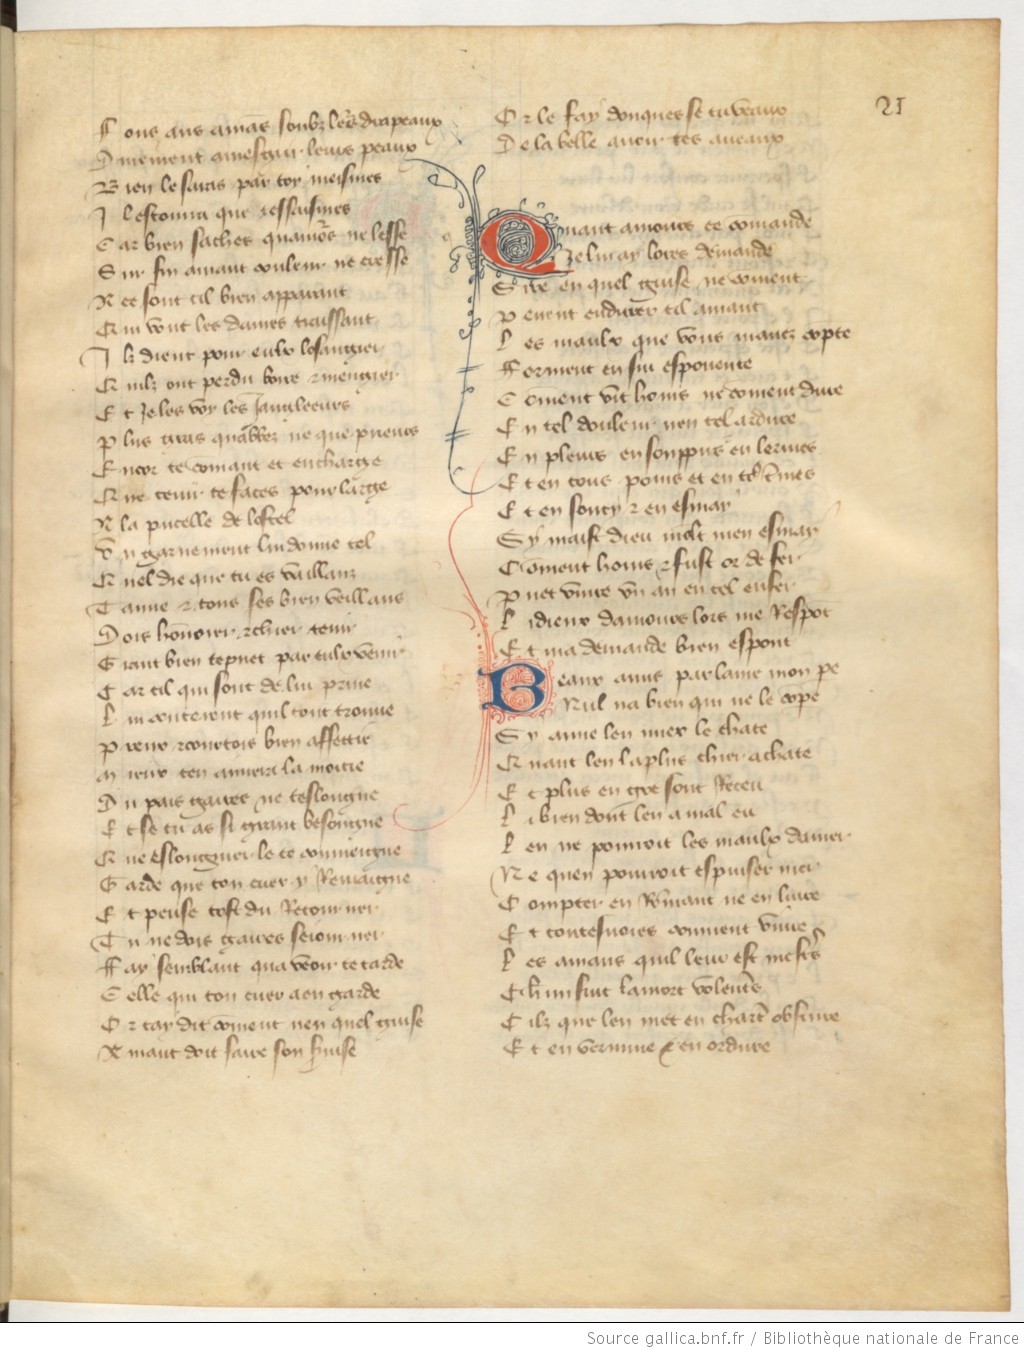 21
T ous aus amās soubz les drapeaux
D mement amesgrir leurs peaux
B ien le sauras par toy meismes
I l estouura que tessaiismes
C ar bien saches quamōs ne lesse
S ur fin amant couleur ne cresse
A ce sont cil bien apparant
Q ui vont les dames traissant
I lz dient pour eulx losangier
Q uilz ont perdu boire z mengier
E t Je les voy les Jangleeurs
P lus gras quabbez ne que prieurs
E ncor te cōmant et encharge
Q ue tenir te faces pour large
A la pucelle de lostel
V n garnement lui donne tel
Q uel die que tu es vaillanz
T amie z tous ses bien veillans
D ois hōnourer z chier tenir
G rant bien te puet par eulx venir
C ar cil qui sont de lui priue
L ui conteront quil tont trouue
P reux z courtois bien affettie
M ieux ten amera la moitie
D u pais gaires ne teslongne
E t se tu as si grant besongne
Q ue eslongnier le te conuiengne
G arde que ton cuer y Remaigne
E t pense tost du Retourner
T u ne dois gaires seiourner
Ff ay semblant qua veoir te tarde
C elle qui ton cuer a en garde
O r tay dit cōment nen quel guise
A mant doit faire son seruise
O r le fay donques se tu veaux
D e la belle auoir tes aueaux
Q uant amours ce comande
Je lui ay lores demande
S ire en quel guise ne coment
P euent endurer cil amant
L es maulx que vous mauez cōpte
Fforment en sui espouente
C ōment vit homs ne coment dure
E n tel douleur nen tel ardure
E n pleurs en souppirs en lermes
E t en tous poins et en to9 t̄mes
E t en soucy z en esmay
Sy maist dieu molt men esmay
C ōment homs z fust or de fer
P uet viure vn an en tel enfer
L i dieux damours lors me Respōt
E t ma demande bien espont
B eaux amis par lame mon pe
Nul na bien qui ne le cōpe
Sy aime len miex le chate
Q uant len la plus chier achate
E t plus en gre sont Receu
L i bien dont len a mal eu
L en ne pourroit les maulx damer
N e quen pourroit espuiser mer
C ompter en Rōmant ne en liure
E t touteuoies conuient viure
L es amans quil leur est mest̄s
Chūn fuit la mort volent̄s
C ilz que len met en chart̄ obscure
E t en vermine z en ordure
Source gallica.bnf.fr / Bibliothèque nationale de France